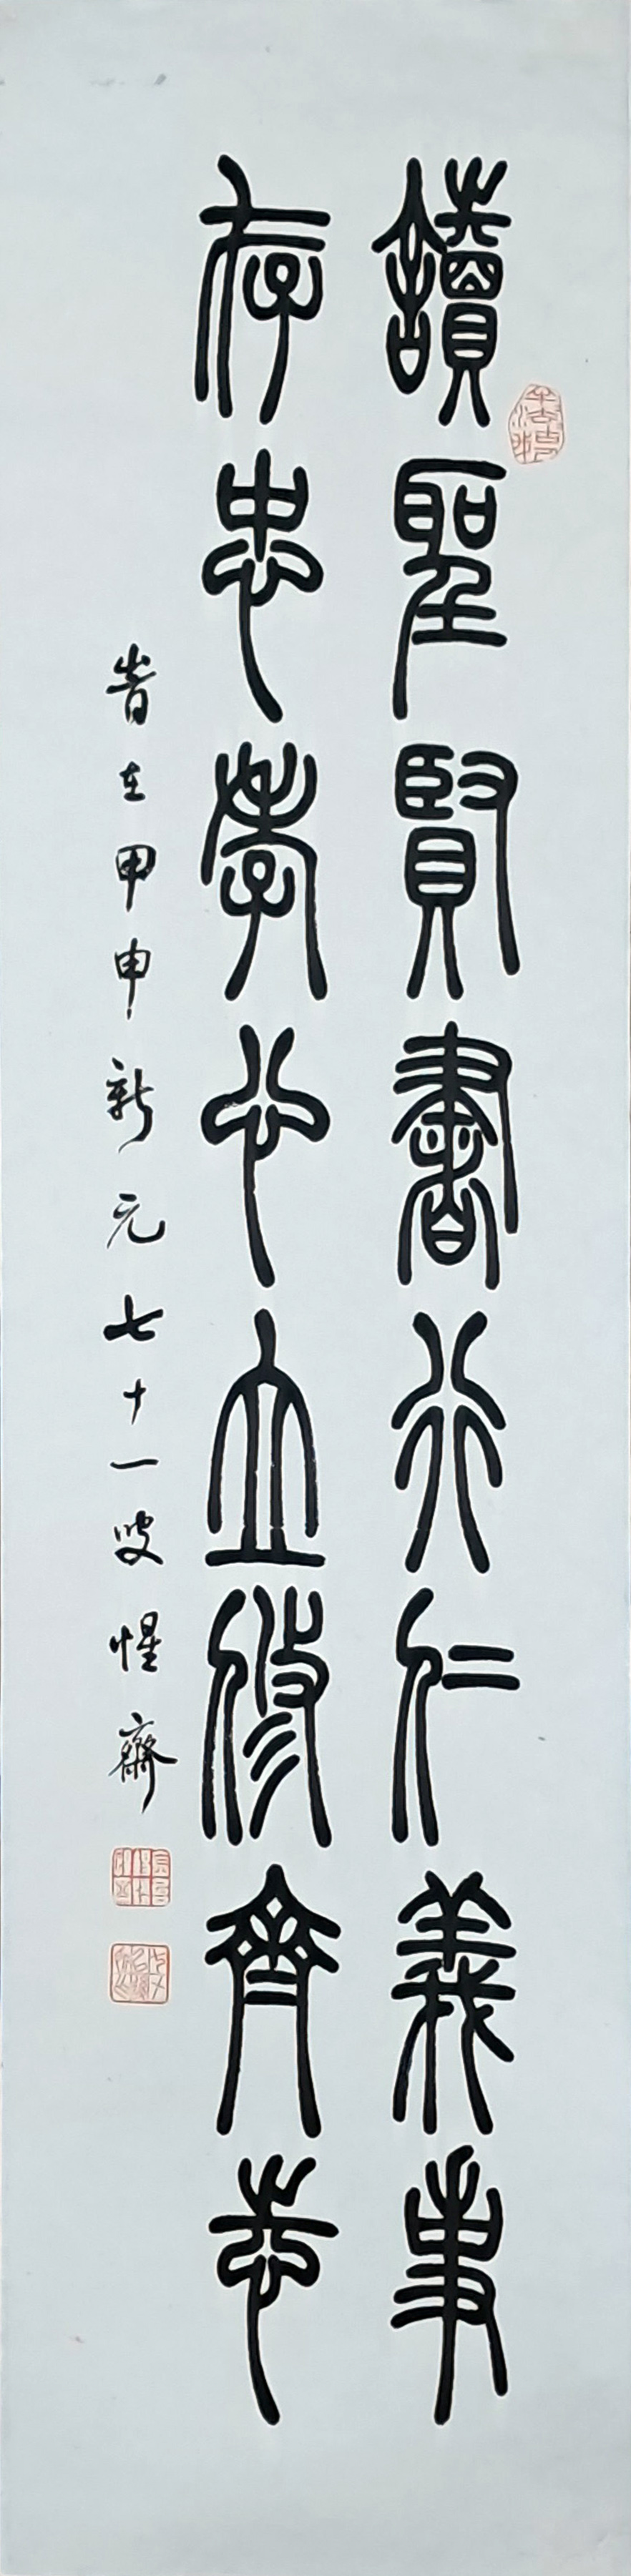 讀聖賢書行仁義事
存忠孝心立修齊志
旹在甲申新元七十一叟惺齋